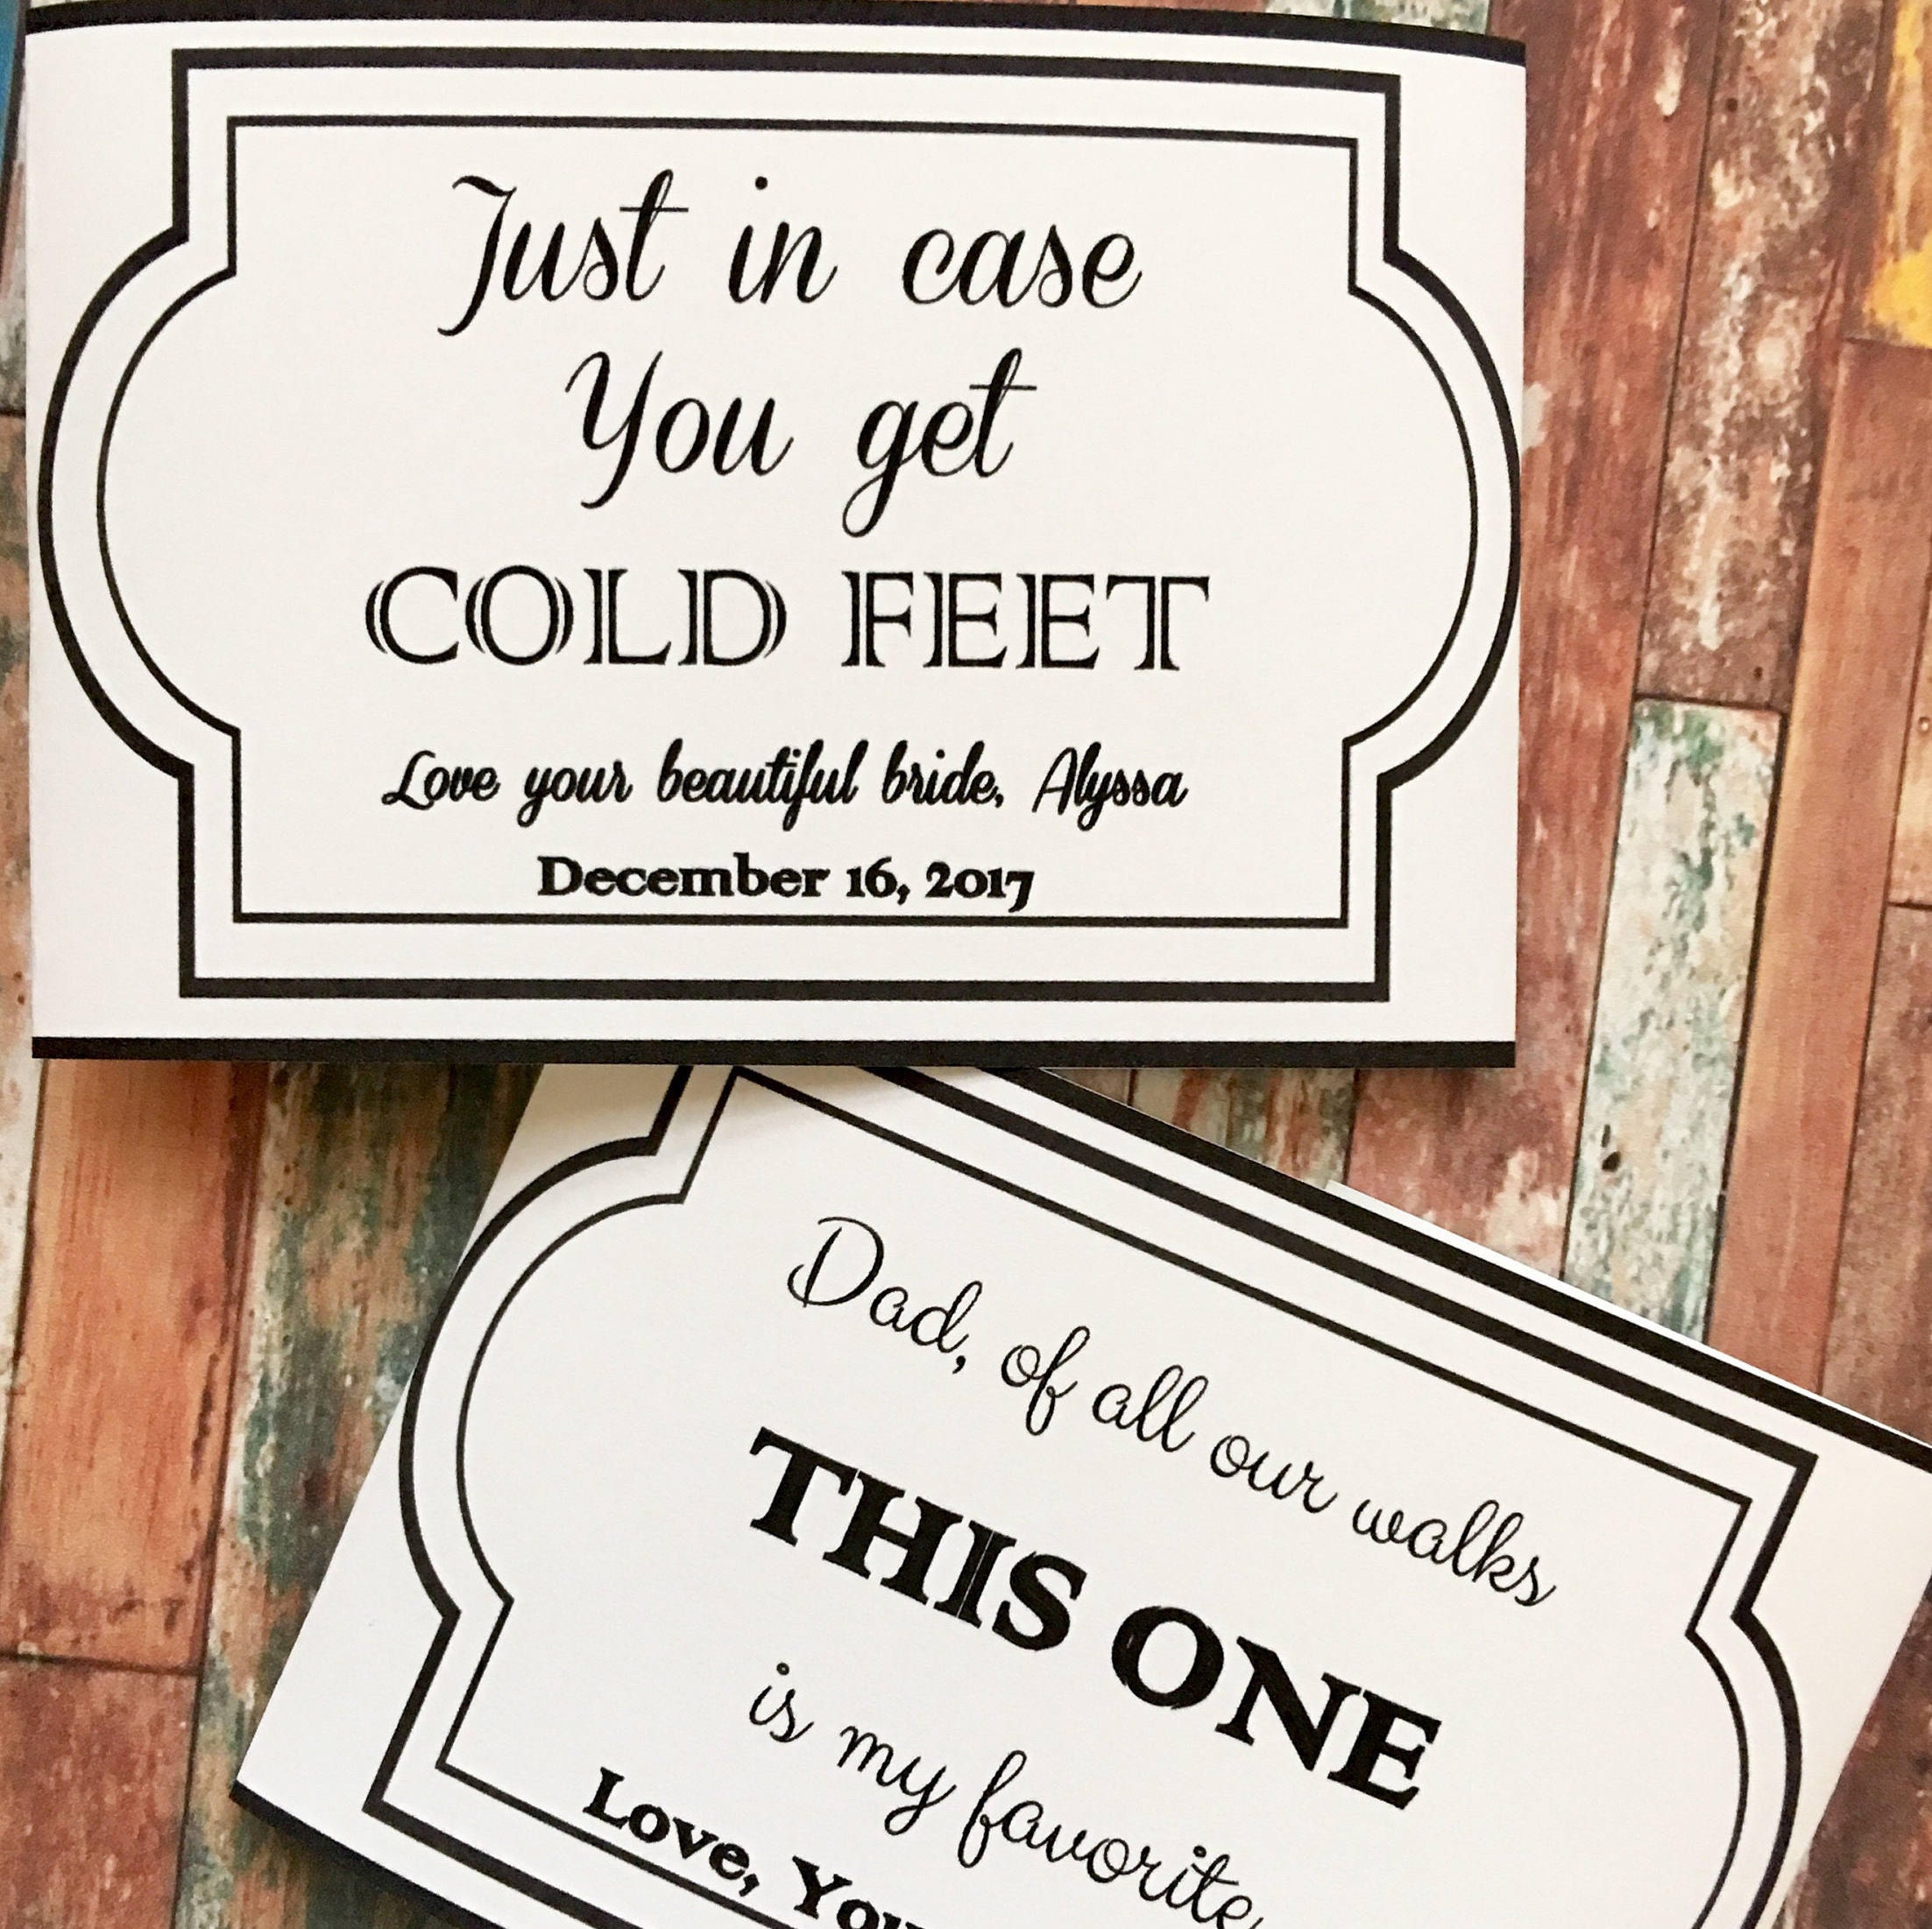 Just in case
You get
COLD FEET
Love your beautiful bride, Alyssa
December 16, 2017
Dad, of all our walks
THIS ONE
is my favorite
Love, You